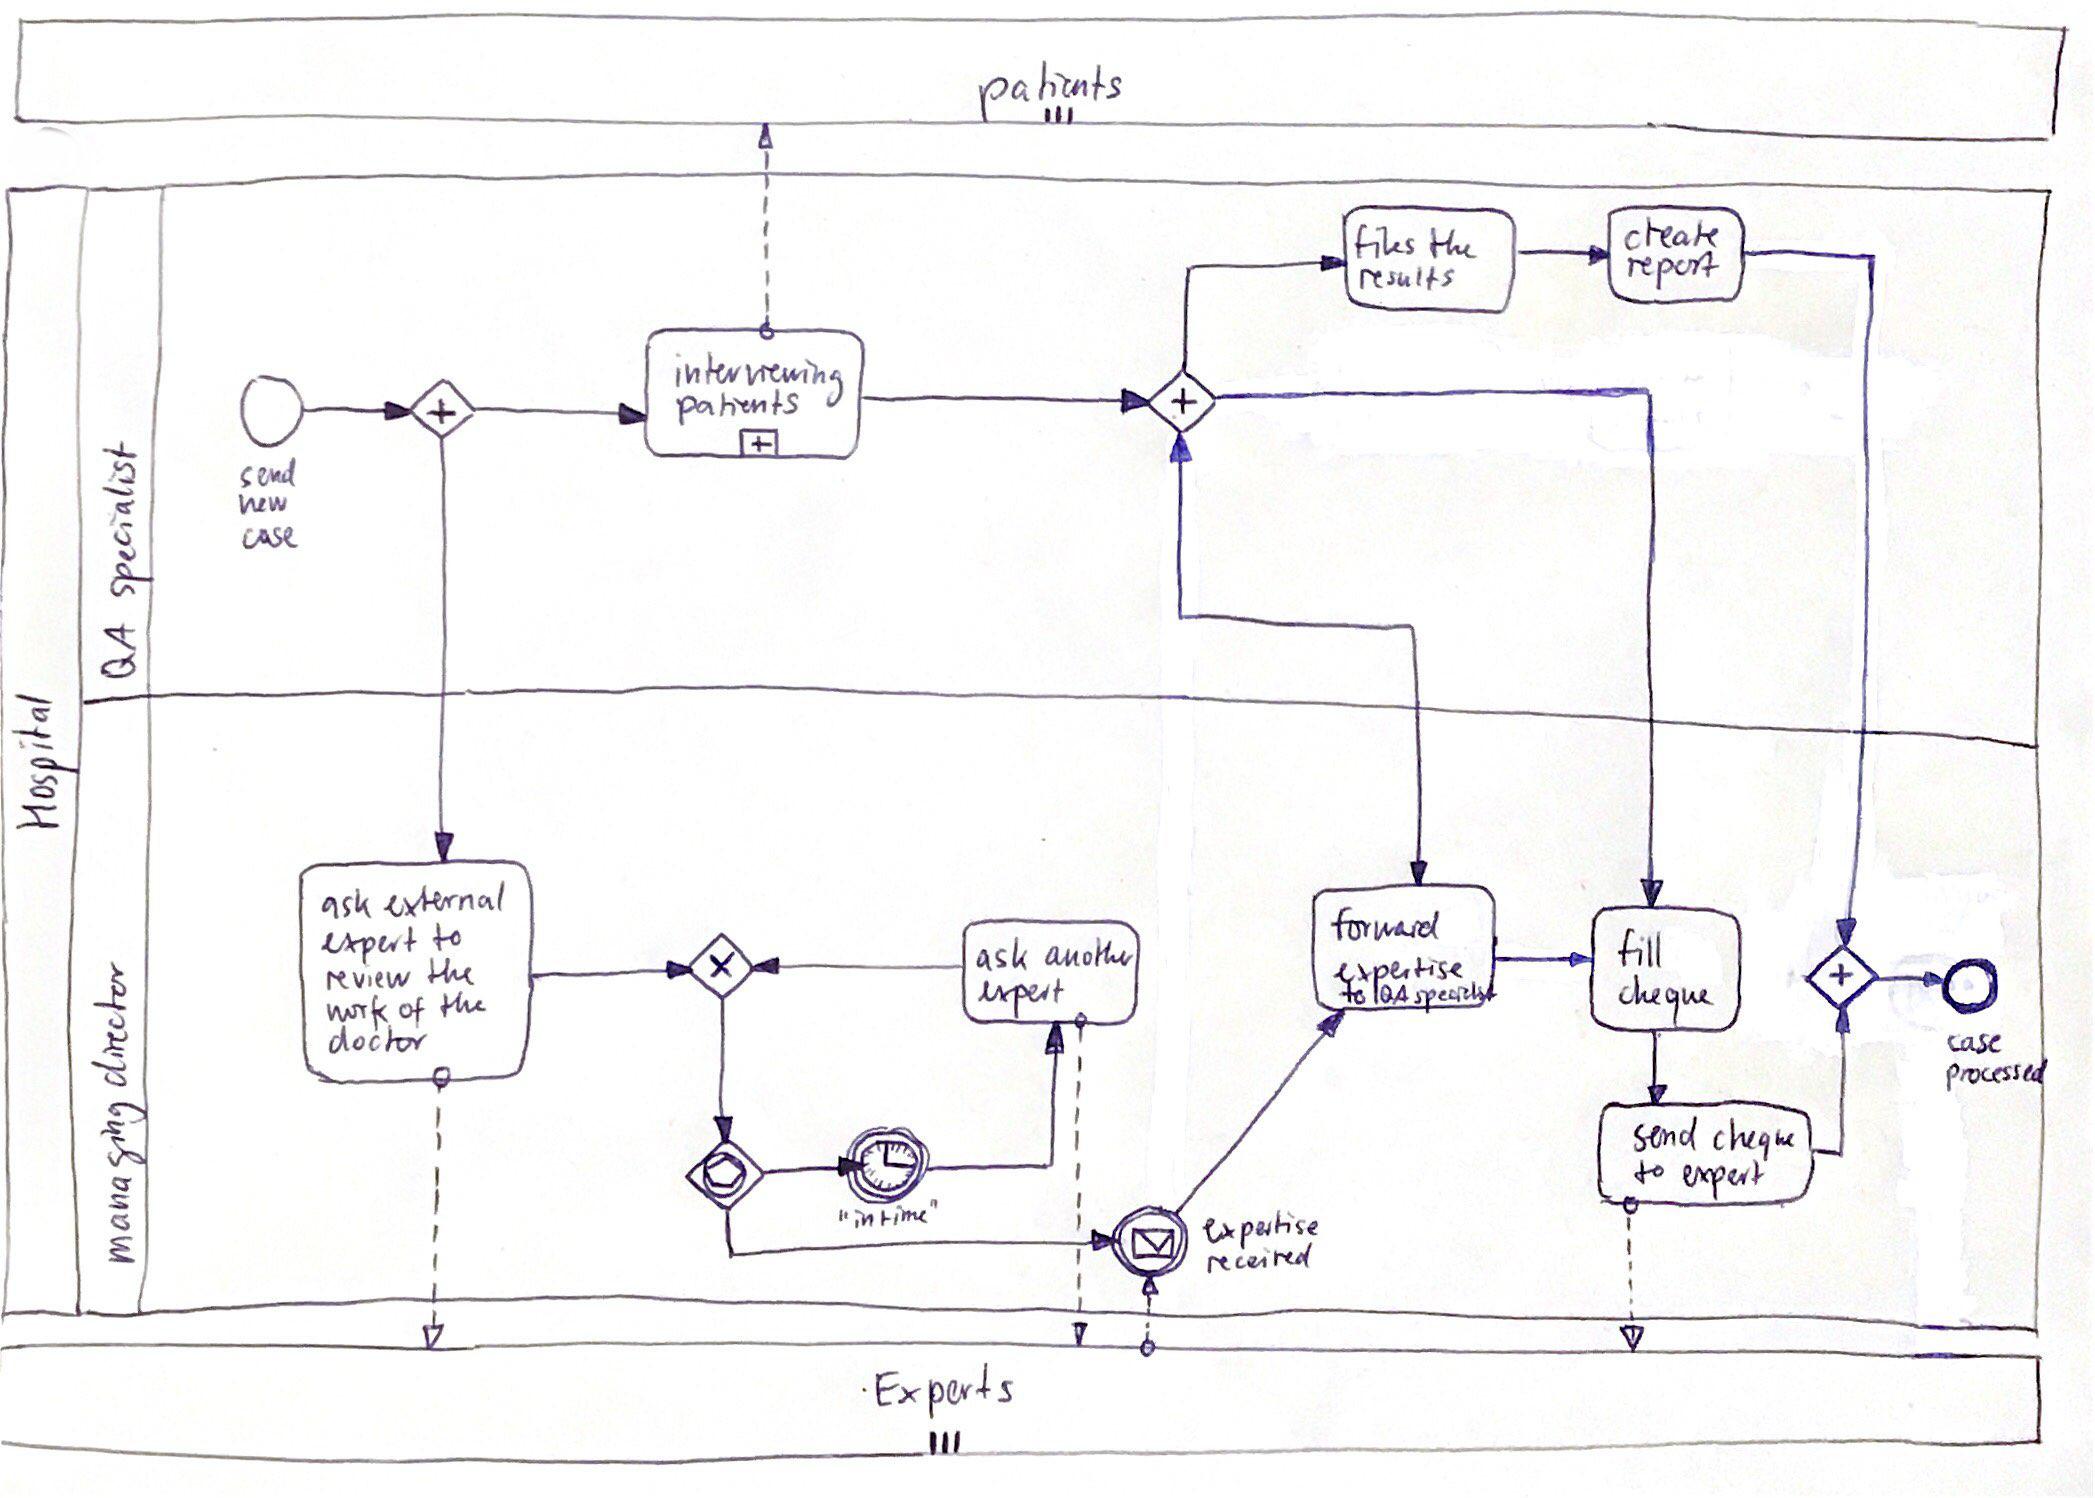 patients
Hospital
QA specialist
managing director
send
new
case
interviewing
patients
files the
results
create
report
ask external
expert to
review the
work of the
doctor
ask another
expert
"in time"
expertise
received
forward
expertise
to QA specialist
fill
cheque
send cheque
to expert
case
processed
Experts